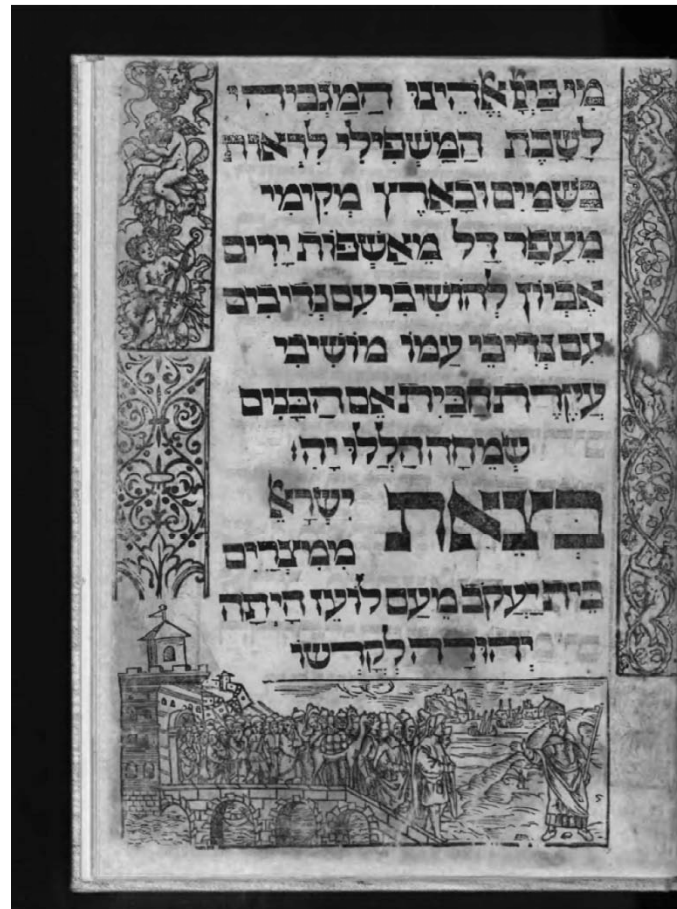 מִי כַּיְיָ אֱלֹהֵינוּ הַמַּגְבִּיהִי
לָשָׁבֶת הַמַּשְׁפִּילִי לִרְאוֹת
בַּשָּׁמַיִם וּבָאָרֶץ מְקִימִי
מֵעָפָר דַּל מֵאַשְׁפּוֹת יָרִים
אֶבְיוֹן לְהוֹשִׁיבִי עִם נְדִיבִים
עִם נְדִיבֵי עַמּוֹ מוֹשִׁיבִי
עֲקֶרֶת הַבַּיִת אֵם הַבָּנִים
שְׂמֵחָה הַלְלוּ יָהּ
בְּצֵאת יִשְׂרָאֵל
מִמִּצְרַיִם
בֵּית יַעֲקֹב מֵעַם לוֹעֵז הָיְתָה
יְהוּדָה לְקָדְשׁוֹ